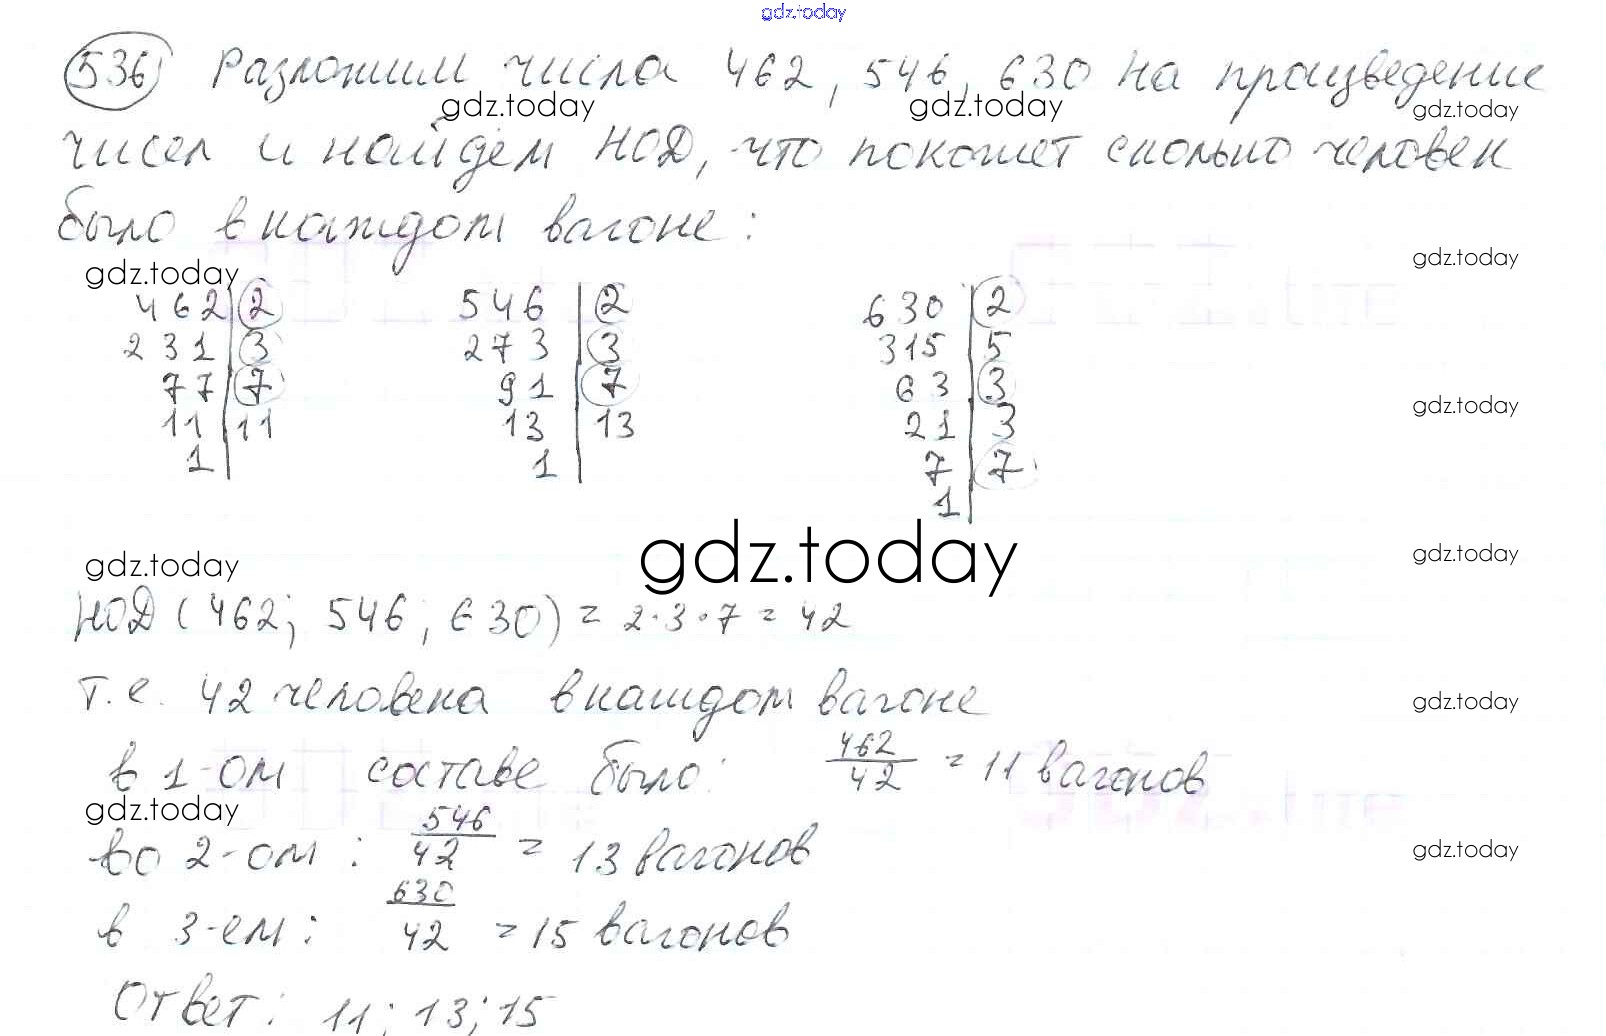 gdz.today
536) Разложим числа 462, 546, 630 на произведение
gdz.today gdz.today gdz.today
чисел и найдем НОД, что покажет сколько человек
было в каждом вагоне:
gdz.today gdz.today
462|2 546|2 630|2
231|3 273|3 315|5
77|7 91|7 63|3
gdz.today
11|11 13|13 21|3
1| 1| 7|7
1|
gdz.today gdz.today gdz.today
НОД (462; 546; 630) = 2·3·7 = 42
т.е. 42 человека в каждом вагоне
gdz.today
в 1-ом составе было: 462/42 = 11 вагонов
gdz.today
во 2-ом: 546/42 = 13 вагонов
gdz.today
в 3-ем: 630/42 = 15 вагонов
Ответ: 11; 13; 15